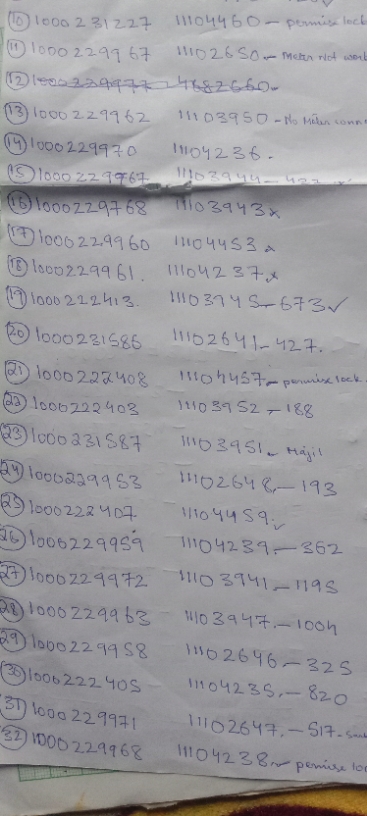 (10) 1000231227 11104460 - permise lock
(11) 1000229967 11102650 - Meter Not work
(12) 1000229977 - 4682660 -
(13) 1000229962 11103950 - No Meter conn
(14) 1000229970 11104236 -
(15) 1000229767 11103944 - 422
(16) 1000229768 11103943 x
(17) 1000229960 11104453 x
(18) 1000229961. 11104237 x
(19) 1000222413. 11103945 - 673 ✓
(20) 1000231586 11102641 - 427.
(21) 1000222408 11104457 - permise lock.
(22) 1000222403 11103952 - 188
(23) 1000231587 11103951 - Majil
(24) 1000229953 11102648 - 193
(25) 1000222407 11104459 ✓
(26) 1000229959 11104239 - 362
(27) 1000229972 11103941 - 1195
(28) 1000229963 11103947 - 1004
(29) 1000229958 11102646 - 325
(30) 1000222405 11104235 - 820
(31) 1000229971 11102647 - 517 -
(32) 1000229968 11104238 - permise loc